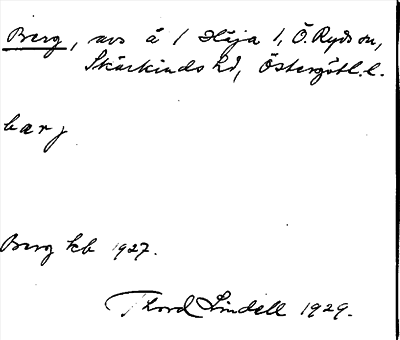 Berg, avs å 1 Häja 1, Ö. Ryds sn,
Skärkinds hd, Östergötl. l.
barj
Berg kb 1927.
Thord Lindell 1929.